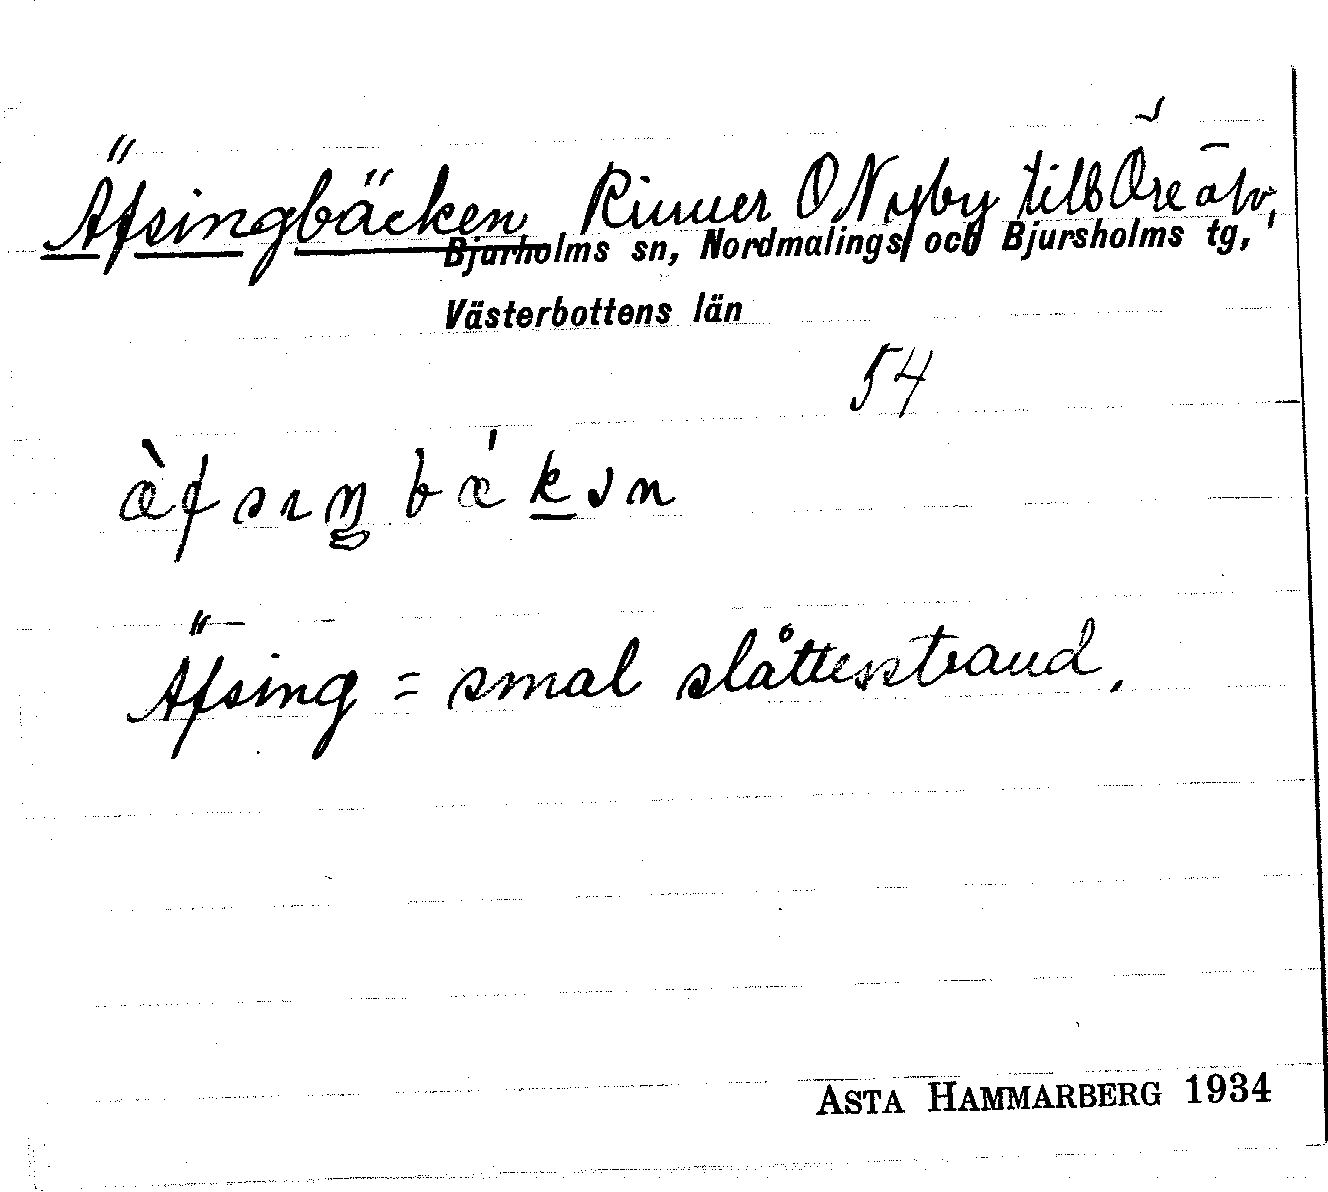 Äfsingbäcken Rinner O Nyby till Öre älv,
Bjurholms sn, Nordmalings och Bjursholms tg,
Västerbottens län
54
Äfsing = smal slåttesstrand.
ASTA HAMMARBERG 1934